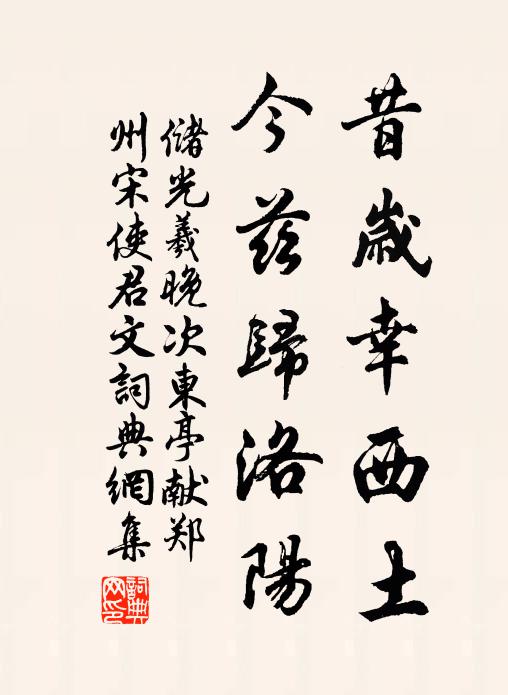 昔歲幸西土
今茲歸洛陽
儲光羲晚次東亭献郑
州宋使君文詞典網集